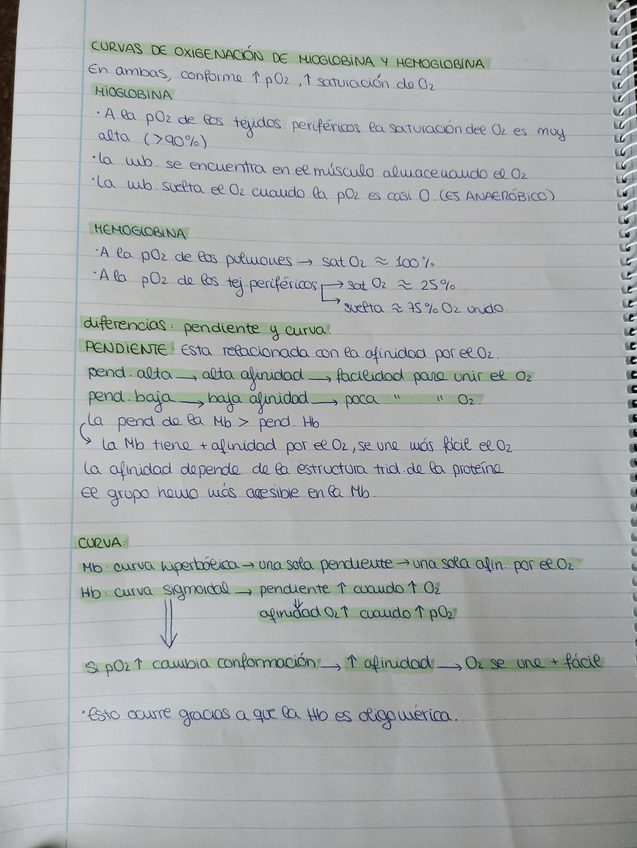 CURVAS DE OXIGENACIÓN DE MIOGLOBINA Y HEMOGLOBINA
En ambas, conforme ↑ pO2, ↑ saturación de O2
MIOGLOBINA
· A la pO2 de los tejidos periféricos la saturación del O2 es muy
alta (>90%)
· la mb. se encuentra en el músculo almacenando el O2
· La mb. suelta el O2 cuando la pO2 es casi 0. (ES ANAERÓBICO)
HEMOGLOBINA
· A la pO2 de los pulmones → sat O2 ≈ 100%
· A la pO2 de los tej periféricos → sat O2 ≈ 25%
→ suelta ≈ 75% O2 unido.
diferencias: pendiente y curva.
PENDIENTE: Esta relacionada con la afinidad por el O2.
pend. alta → alta afinidad → facilidad para unir el O2
pend. baja → baja afinidad → poca " " O2.
La pend de la Mb > pend. Hb
↳ la Mb tiene + afinidad por el O2, se une más fácil el O2
La afinidad depende de la estructura trid. de la proteína
El grupo hemo más accesible en la Mb.
CURVA:
Mb: curva hiperbólica → una sola pendiente → una sola afin. por el O2
Hb: curva sigmoidal → pendiente ↑ cuando ↑ O2
⇓
afinidad O2 ↑ cuando ↑ pO2
Si pO2 ↑ cambia conformación → ↑ afinidad → O2 se une + fácil
· Esto ocurre gracias a que la Hb es oligomérica.